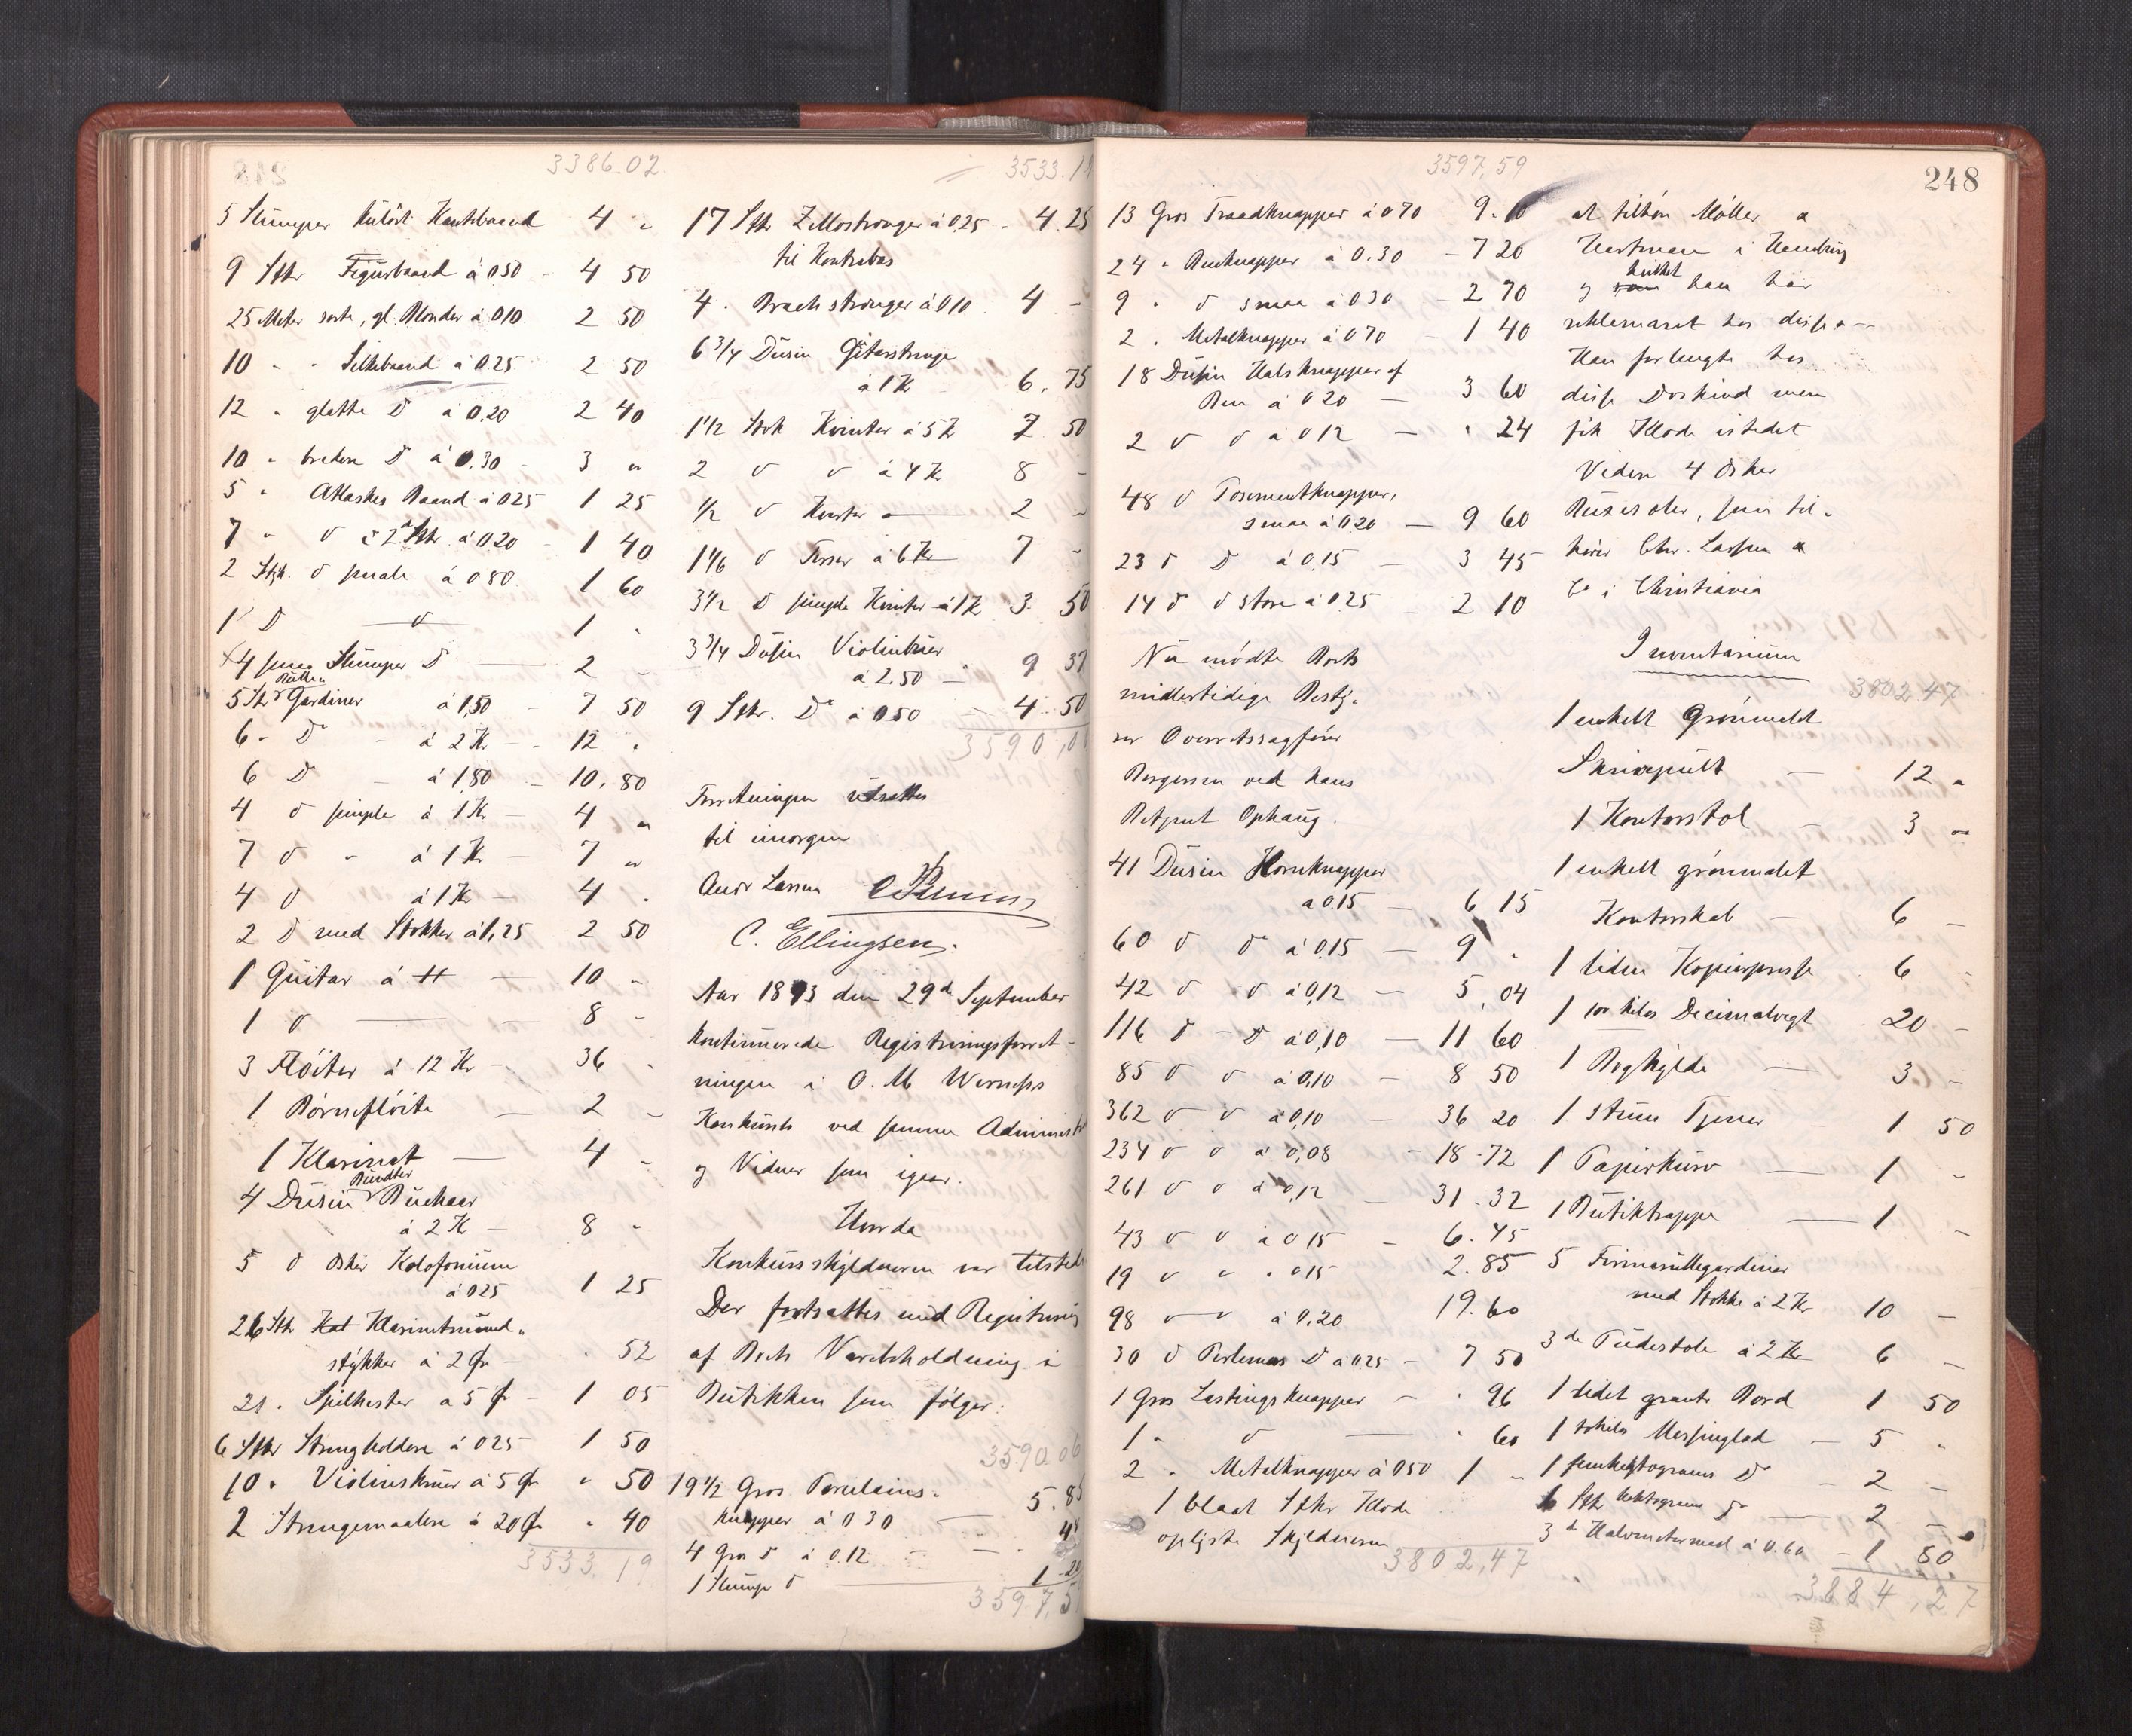 3386.02
5 Stumper kulört Kantebaand 4 "
9 Stkr Figurbaand à 0.50 - 4 50
25 Meter sorte, gl. Blonder à 0.10 2 50
10 " " Silkebaand à 0.25 2 50
12 " glatte Do à 0.20 2 40
10 " bredere Do à 0.30 - 3 "
5 " Atlaskes Baand à 0.25 1 25
7 " do à 0.20 - 1 40
2 Stk. do smale à 0.80 1 60
1 Do do 1 "
4 smaa Stumper Do 2 -
5 Stkr Rulle Gardiner à 1,50 - 7 50
6 - Do - à 2 Kr - 12 "
6 Do - à 1,80 - 10.80
4 do simple à 1 Kr - 4 "
7 do - à 1 Kr - 7 "
4 do à 1 Kr - 4 -
2 Do med Stokker à 1,25 2 50
1 Guitar à 10 -
1 do 8 -
3 Flöiter à 12 Kr - 36 -
1 Börneflöite 2 -
1 Klarinet 4 -
4 Dusin Bundter Buehaar
à 2 Kr - 8 -
5 do Æsker Kolofonium
à 0.25 1 25
26 Stkr Klarinetmund-
stykker à 2 Ør - . 52
21 . Spilhester à 5 Ør - 1 05
6 Stkr Strengholdere à 0.25 1 50
10 " Violinskruer à 5 Ør " 50
2 Strengemaalere à 20 Ør " 40
3533.19
3533.19
17 Stkr Zellostrenger à 0.25 - 4.25
til Kontrabas
4 . Bratsch strenger à 0.10 4 -
6 3/4 Dusin Gitarstrenge
à 1 Kr - 6.75
1 1/2 Stok Kvinter à 5 Kr 7 50
2 do do à 4 Kr 8 -
1/2 do Kvarter 2 -
1 1/6 do Terser à 6 Kr 7 -
3 1/2 do simple Kvinter à 1 Kr 3 50
3 3/4 Dusin Violinbuer
à 2.50 - 9 37
9 Stkr. Do à 0.50 - 4.50
3590,06
Forretningen udsattes
til imorgen
Andr Larsen
C. Ellingsen.
Aar 1893 den 29de September
kontinuerede Registreringsforret-
ningen i O. M. Wernesss
Konkursbo ved samme Administr
og Vidner som igaar.
Hvorda
Konkursskyldneren var tilstede
Der fortsattes med Registrering
af Boets Varebeholdning i
Butikken som følger:
3590.06
19 1/2 Gros Porcelains-
knapper à 0.30 5.85
4 Gros Do à 0.12 - 48
1 Stump do 1 20
3597,59
3597,59
248
13 Gros Traadknapper à 0.70 9.10
24 " Benknapper à 0.30 - 7 20
9 " do smaa à 0.30 - 2 70
2 . Metalknapper à 0.70 - 1 40
18 Dusin Halsknapper af
Ben à 0.20 - 3 60
2 do do à 0.12 - . 24
48 do Posementknapper,
smaa à 0.20 - 9 60
23 do Do à 0.15 - 3 45
14 do do store à 0.25 - 2 10
Nu mødte Boets
midlertidige Besty-
rer Overretssagfører
Borgersen ved hans
Betjent Ophaug.
41 Dusin Hornknapper
à 0.15 - 6 15
60 do do à 0.15 - 9 "
42 do do à 0,12 - 5,04
116 do - Do à 0,10 - 11 60
85 do do à 0,10 - 8 50
362 do do à 0,10 - 36 20
234 do do à 0,08 - 18 - 72
261 do do à 0,12 - 31 - 32
43 do do à 0.15 - 6.45
19 do do " 0.15 2.85
98 do do à 0.20 19.60
30 do Perlemors Do à 0.25 - 7 50
1 Gros Lastings knapper - . 96
1 " do - . 60
2 " Metalknapper à 0.50 1 -
1 blaat Stkr Klæde
oplyste Skyldneren
3802,47
at tilhøre Møller &
Hartmann i Hamburg
og som hvilket han har
reklameret hos disse -
Han forlangte hos
disse Doskind men
fik Klæde istedet
Videre 4 Æsker
hører Chr. Larsen &
Co i Christiania
Inventarium
3802.47
1 enkelt Grønmalet
Skrivepult - 12 "
1 Kontorstol - 3 "
1 enkelt grønmalet
Kontorskab - 6 -
1 liden Kopierpresse 6 -
1 100 Kilos Decimalvægt 20 -
1 Boghylde 3 -
1 stum Tjener - 1 50
1 Papirkurv 1 -
1 Butiktrappe 1 -
5 Firmarullegardiner
med Stokke à 2 Kr 10 -
3de Pudestole à 2 Kr 6 -
1 lidet graat Bord 1 50
1 Kilos Messinglod - 5 "
1 femhektograms Do - 2 -
Stk hektograms Do 2 -
3de Halvmetermaal à 0.60 - 1 80
3884,27